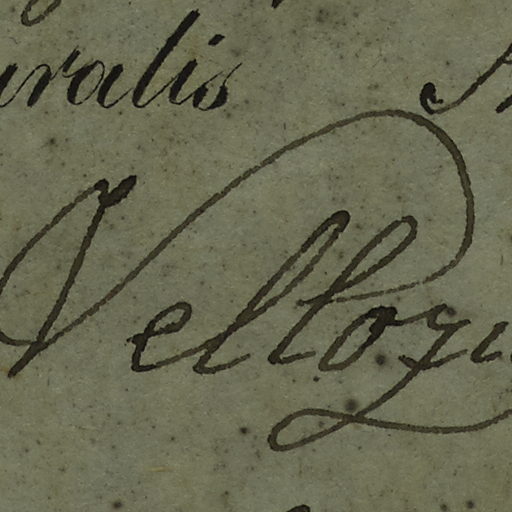 uralis
Vellozi